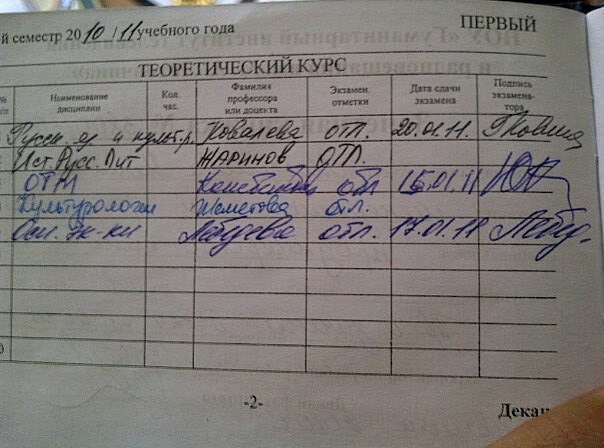 -й семестр 2010/11 учебного года ПЕРВЫЙ
ТЕОРЕТИЧЕСКИЙ КУРС
№ п/п Наименование дисциплин Кол. час. Фамилия профессора или доцента Экзамен. отметки Дата сдачи экзамена Подпись экзамена- тора
Русск. яз и культ. р. Ковалева отл. 20.01.11.
Ист. Русс. Лит Жаринов ОТЛ.
ОТМ отл 15.01.11
Культурология отл.
Осн. эк-ки отл. 17.01.11
-2-
Декан